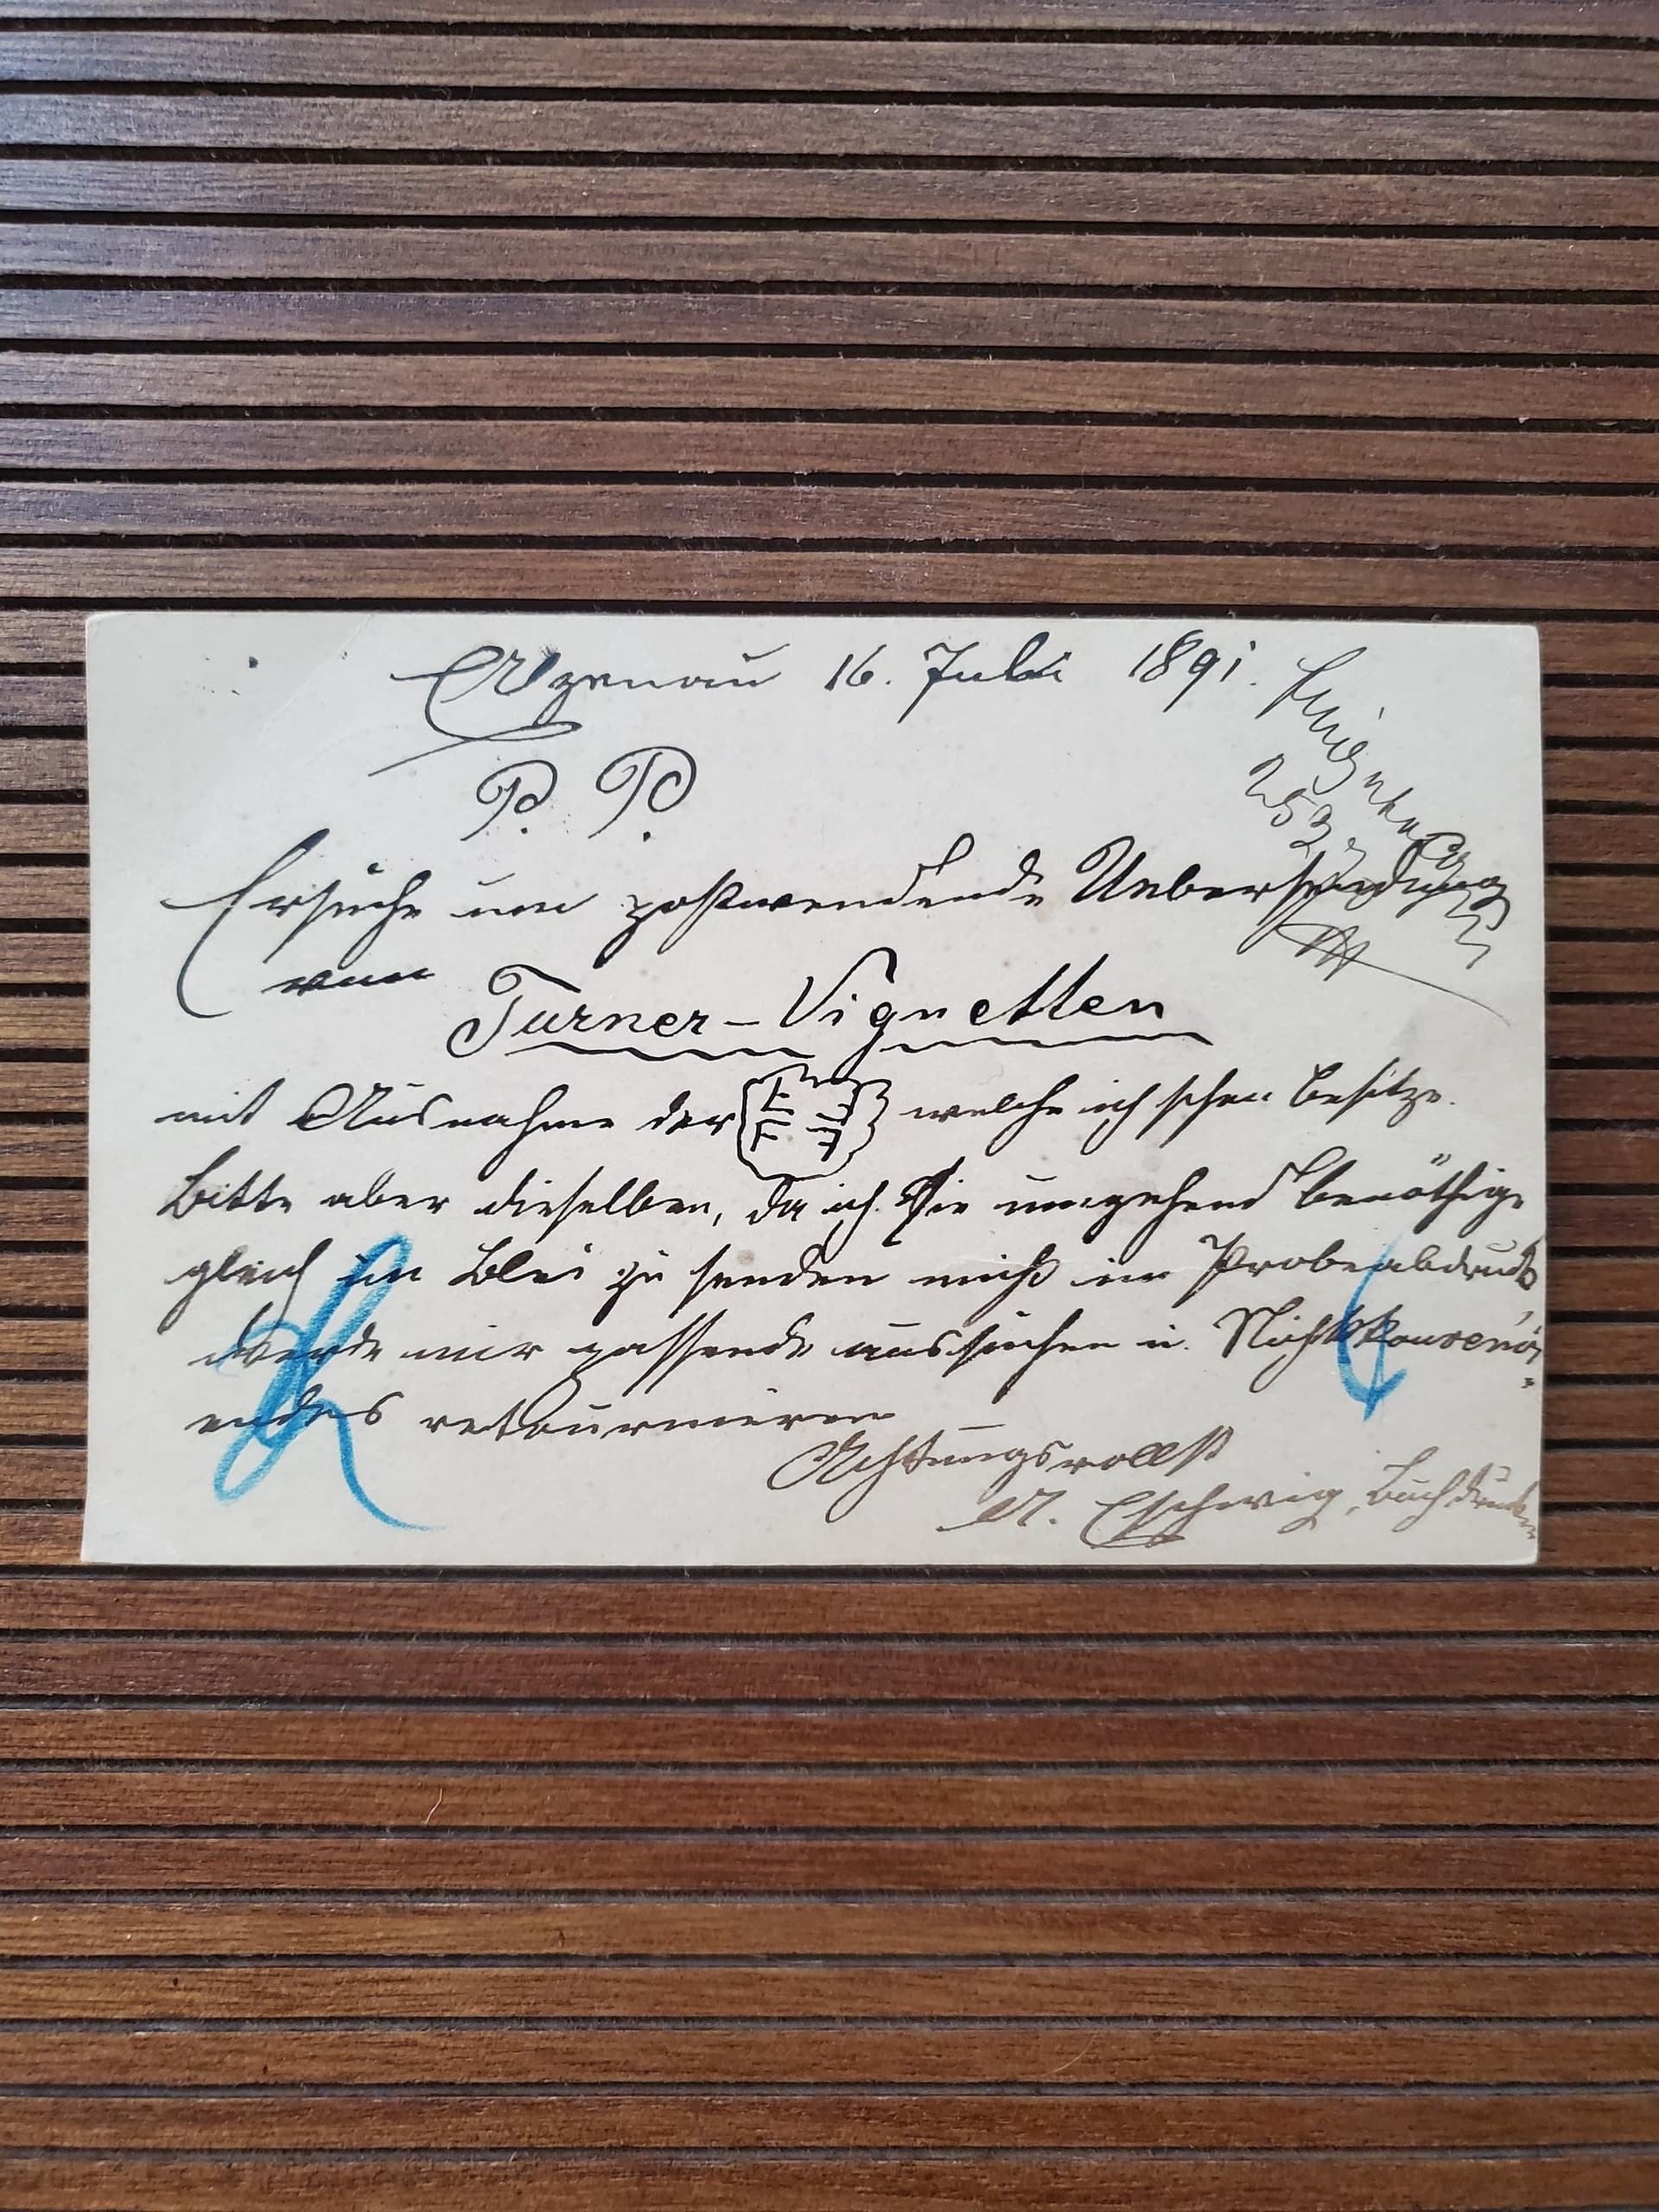 Alzenau 16. Juli 1891.
P. P.
Ersuche um postwendende Uebersendung
von Turner-Vignetten
mit Ausnahme der F F F F welche ich schon besitze.
Bitte aber dieselben, da ich Sie umgehend benöthige
gleich in Blei zu senden nicht in Probeabdruck
werde mir passende aussuchen u. Nichtkonveni-
endes retournieren
Achtungsvollst
A. Eschwig, Buchdruckerei
253